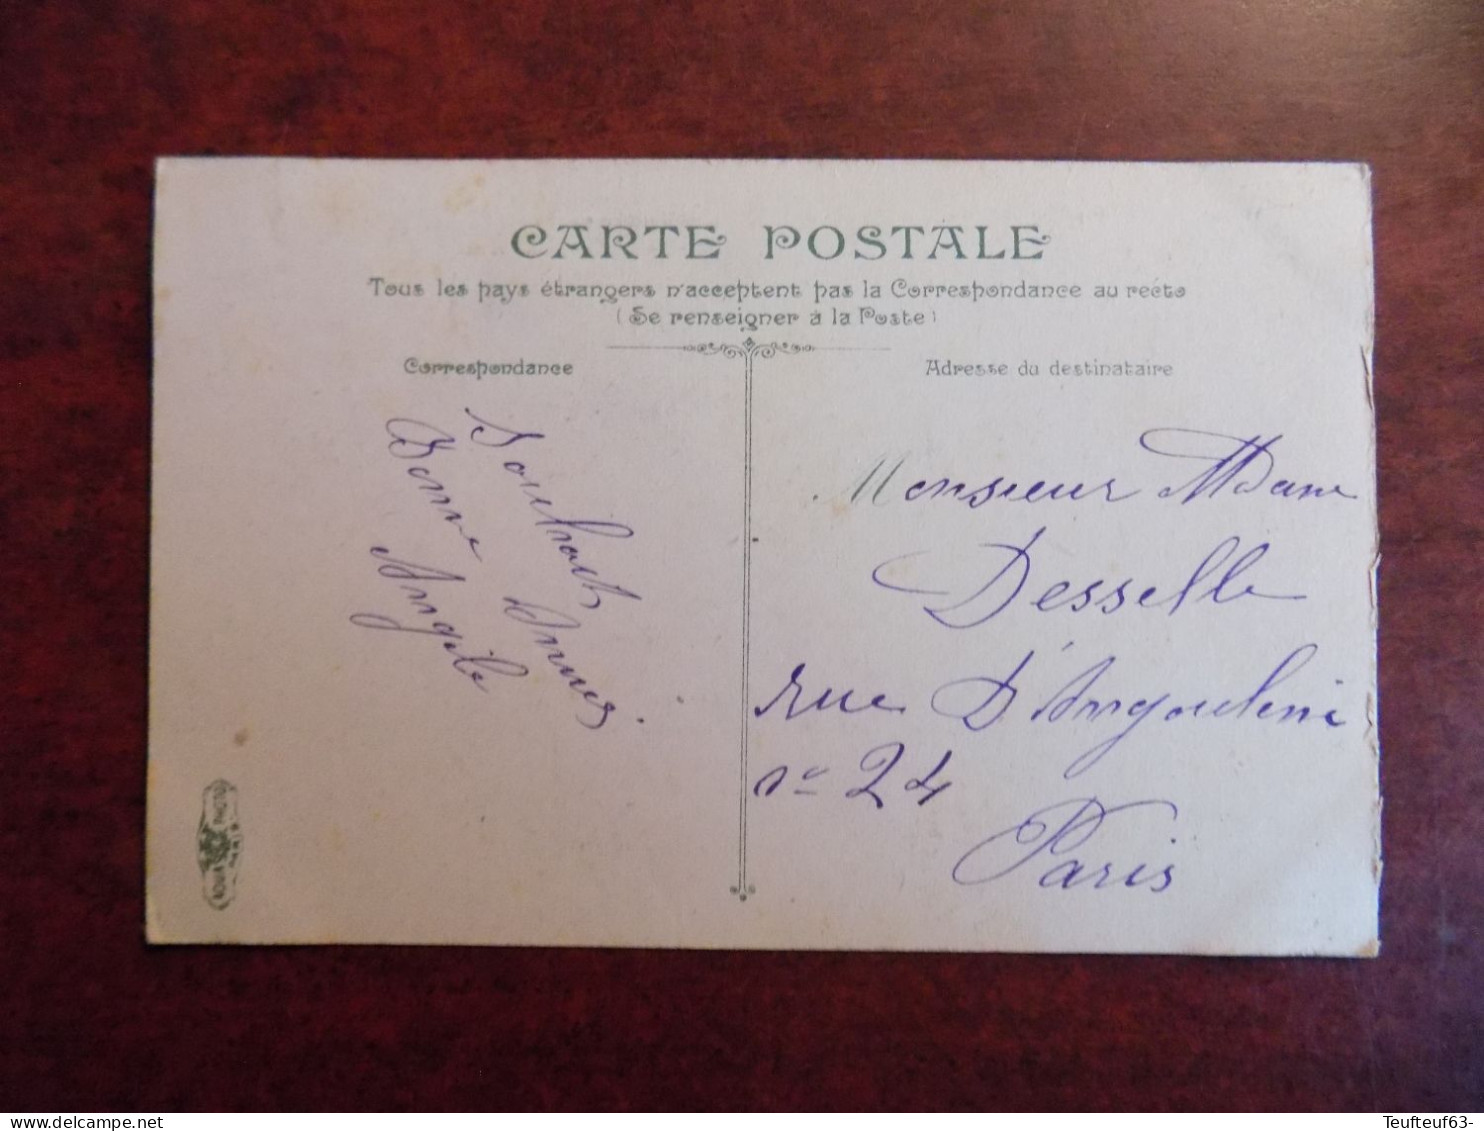 CARTE POSTALE
Tous les pays étrangers n'acceptent pas la Correspondance au recto
(Se renseigner à la Poste)
Correspondance
Adresse du destinataire
Souhait
Bonne Annés.
Angèle
Monsieur MDame
Desselle
rue D'Angoulême
no 24
Paris
PHOTO
www.delcampe.net
Teufteuf63-